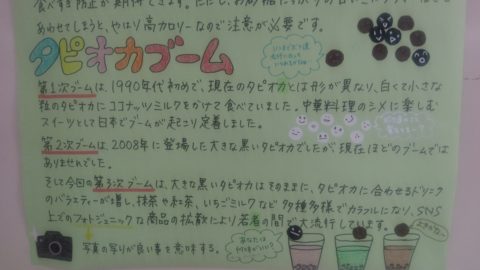 食べすぎ防止が期待できます。ただし、お砂糖たっぷりの甘いミルクティーなどと
あわせてしまうと、やはり高カロリーなので注意が必要です。
タピオカブーム
第1次ブームは、1990年代初めで、現在のタピオカとは形が異なり、白くて小さな
粒のタピオカにココナッツミルクをかけて食べていました。中華料理のシメに楽しむ
スイーツとして日本でブームが起こり定着しました。
第2次ブームは、2008年に登場した大きな黒いタピオカでしたが、現在ほどのブームでは
ありませんでした。
そして今回の第3次ブームは、大きな黒いタピオカはそのままに、タピオカに合わせるドリンク
のバラエティーが増し、抹茶や紅茶、いちごミルクなど多種多様でカラフルになり、SNS
上でのフォトジェニックな商品の拡散により若者の間で大流行しています。
写真の写りが良い事を意味する。
あなたは
何味がいい?